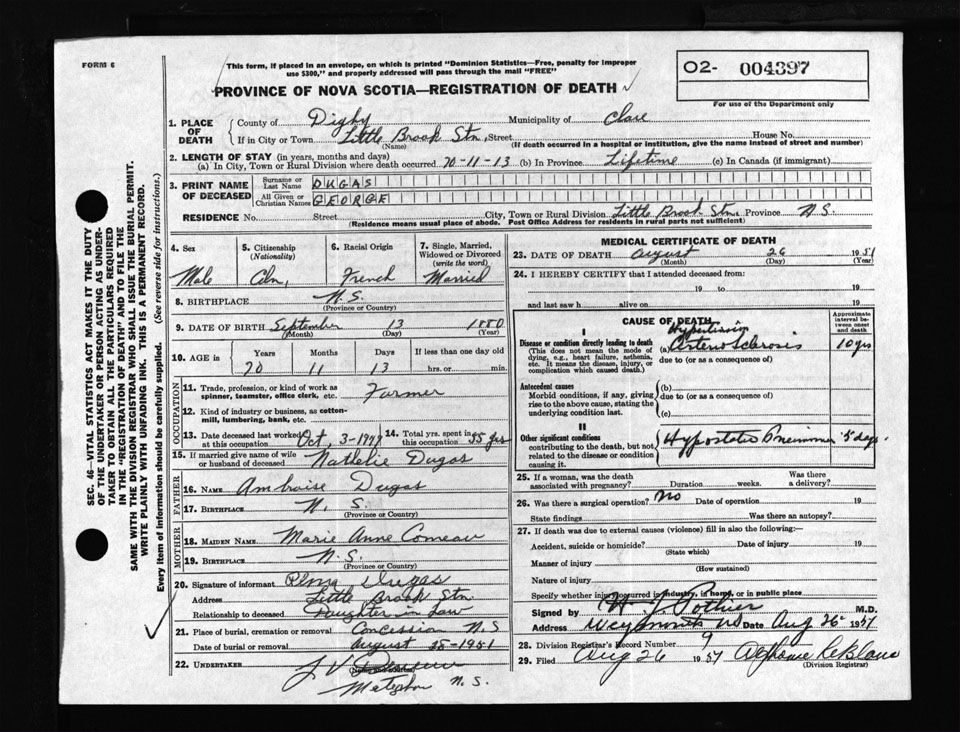 FORM 6
This form, if placed in an envelope, on which is printed "Dominion Statistics—Free, penalty for improper
use $300," and properly addressed will pass through the mail "FREE"
PROVINCE OF NOVA SCOTIA—REGISTRATION OF DEATH
O2- 004397
For use of the Department only
1. PLACE OF DEATH
County of Digby Municipality of Clare
If in City or Town Little Brook Stn, Street House No.
(Name) (If death occurred in a hospital or institution, give the name instead of street and number)
2. LENGTH OF STAY (in years, months and days)
(a) In City, Town or Rural Division where death occurred 70-11-13 (b) In Province Lifetime (c) In Canada (if immigrant)
3. PRINT NAME OF DECEASED
Surname or Last Name DUGAS
All Given or Christian Names GEORGE
RESIDENCE No. Street City, Town or Rural Division Little Brook Stn. Province N.S.
(Residence means usual place of abode. Post Office Address for residents in rural parts not sufficient)
4. Sex
Male
5. Citizenship
(Nationality)
Cdn,
6. Racial Origin
French
7. Single, Married, Widowed or Divorced
(write the word)
Married
8. BIRTHPLACE N.S.
(Province or Country)
9. DATE OF BIRTH September 13 1880
(Month) (Day) (Year)
10. AGE in Years Months Days If less than one day old
70 11 13 hrs. or min.
OCCUPATION
11. Trade, profession, or kind of work as
spinner, teamster, office clerk, etc. Farmer
12. Kind of industry or business, as cotton-
mill, lumbering, bank, etc.
13. Date deceased last worked at this occupation Oct, 3-1947
14. Total yrs. spent in this occupation 55 yrs
15. If married give name of wife
or husband of deceased Nathelie Dugas
FATHER
16. NAME Ambroise Dugas
17. BIRTHPLACE N. S.
(Province or Country)
MOTHER
18. MAIDEN NAME Marie Anne Comeau
19. BIRTHPLACE N.S.
(Province or Country)
20. Signature of informant Dugas
Address Little Brook Stn
Relationship to deceased Daughter in Law
21. Place of burial, cremation or removal Concession N.S
Date of burial or removal August 28-1951
22. UNDERTAKER J V
(Name and address)
N. S.
MEDICAL CERTIFICATE OF DEATH
23. DATE OF DEATH August 26 1951
(Month) (Day) (Year)
24. I HEREBY CERTIFY that I attended deceased from
19 to 19
and last saw h alive on 19
CAUSE OF DEATH
Approximate interval between onset and death
I
Disease or condition directly leading to death
(This does not mean the mode of dying, e.g., heart failure, asthenia, etc. It means the disease, injury, or complication which caused death.)
Hypertension
(a) Arterio Sclerosis 10 yrs
due to (or as a consequence of)
Antecedent causes
Morbid conditions, if any, giving rise to the above cause, stating the underlying condition last.
(b)
due to (or as a consequence of)
(c)
II
Other significant conditions
contributing to the death, but not related to the disease or condition causing it.
Hypostatic 5 days
25. If a woman, was the death associated with pregnancy? Duration weeks. Was there a delivery?
26. Was there a surgical operation? No Date of operation 19
State findings Was there an autopsy?
27. If death was due to external causes (violence) fill in also the following:—
Accident, suicide or homicide? Date of injury 19
(State which)
Manner of injury
(How sustained)
Nature of injury
Specify whether injury occurred in industry, in home, or in public place
Signed by Pothier M.D.
Address Weymouth NS Date Aug 26 1951
28. Division Registrar's Record Number 9
29. Filed Aug 26 1951 LeBlanc
(Division Registrar)
SEC. 46—VITAL STATISTICS ACT MAKES IT THE DUTY
OF THE UNDERTAKER OR PERSON ACTING AS UNDER-
TAKER TO OBTAIN ALL THE PARTICULARS REQUIRED
IN THE "REGISTRATION OF DEATH" AND TO FILE THE
SAME WITH THE DIVISION REGISTRAR WHO SHALL ISSUE THE BURIAL PERMIT.
WRITE PLAINLY WITH UNFADING INK. THIS IS A PERMANENT RECORD.
Every item of information should be carefully supplied. (See reverse side for instructions.)